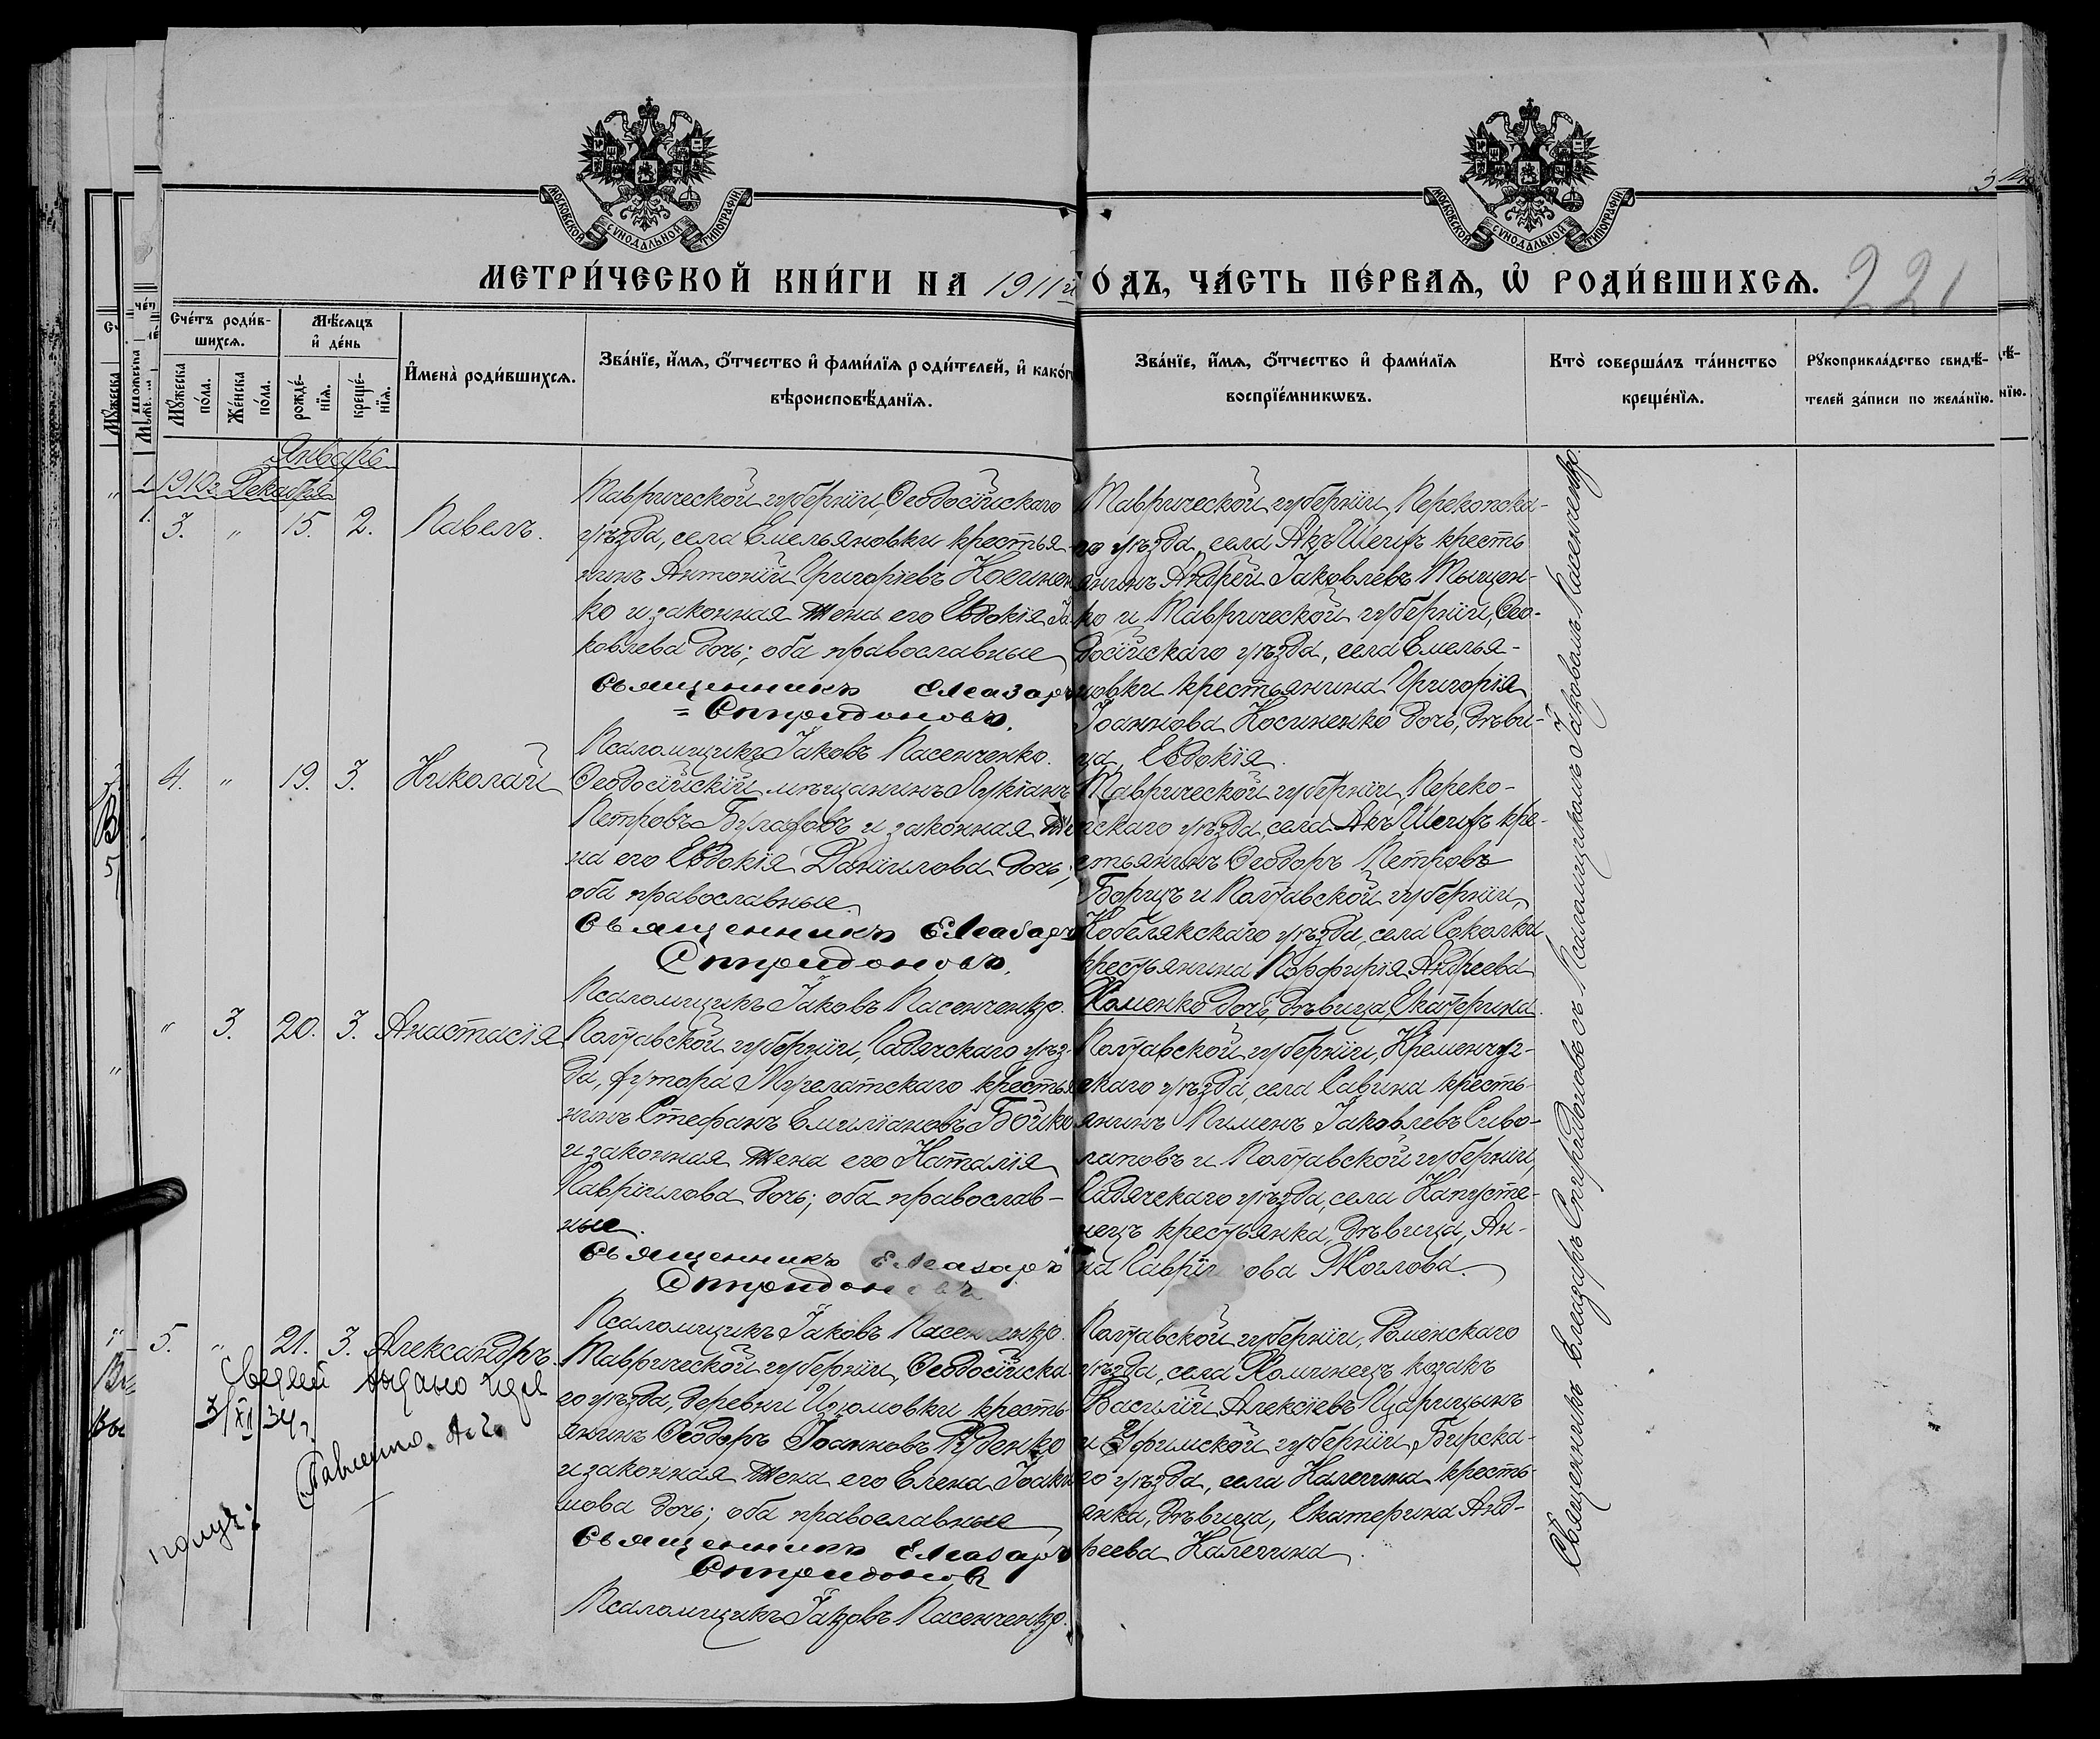 МОСКОВСКОЙ СѴНОДАЛЬНОЙ ТИПОГРАФІИ
МОСКОВСКОЙ СѴНОДАЛЬНОЙ ТИПОГРАФІИ
МЕТРИ́ЧЕСКОЙ КНИ́ГИ НА 1911й ГО́ДЪ, ЧА́СТЬ ПЕ́РВАѦ, Ѡ҆ РОДИ́ВШИХСѦ.
221
Сче́тъ роди́в-
шихсѧ.
Мꙋ́жеска по́ла.
Же́нска по́ла.
Мѣ́сѧцъ
и҆ де́нь
рожде́-
нїѧ.
креще́-
нїѧ.
И҆мена̀ роди́вшихсѧ.
Зва́нїе, и҆́мѧ, ѻ҆́тчество и҆ фами́лїѧ роди́телей, и҆ како́гѡ
вѣроисповѣ́данїѧ.
Зва́нїе, и҆́мѧ, ѻ҆́тчество и҆ фами́лїѧ
воспрїе́мникѡвъ.
Кто̀ соверша́лъ та́инство
креще́нїѧ.
Рꙋкоприкла́дство свидѣ́-
телей за́писи по жела́нїю.
Январь
1910 г. Декабря
3. " 15. 2. Павелъ.
Таврической губерніи, Ѳеодосійскаго
уѣзда, села Емельяновки крестья-
нинъ Антоній Григоріевъ Косинен
ко и законная жена его Евдокія Іа
ковлева дочь; оба православные
Священникъ Елеазаръ
Спиридоновъ.
Псаломщикъ Іаковъ Пасенченко.
Таврической губерніи, Перекопска-
го уѣзда, села Акъ Шеихъ кресть
янинъ Андрей Іаковлевъ Тыщен-
ко и Таврической губерніи, Ѳео-
досійскаго уѣзда, села Емелья-
новки крестьянина Григорія
Іоаннова Косиненко дочь, дѣви-
ца, Евдокія.
4. " 19. 3. Николай
Ѳеодосійскій мѣщанинъ Лукіанъ
Петровъ Булаховъ и законная же
на его Евдокія Даніилова дочь;
оба православные.
Священникъ Елеазаръ
Спиридоновъ.
Псаломщикъ Іаковъ Пасенченко.
Таврической губерніи, Переко-
пскаго уѣзда, села Акъ Шеихъ кре-
стьянинъ Ѳеодоръ Петровъ
Борицъ и Полтавской губерніи,
Кобелякскаго уѣзда, села Соколки
крестьянина Порфирія Андреева
Хоменко дочь, дѣвица, Екатерина.
" 3. 20. 3. Анастасія
Полтавской губерніи, Гадячскаго уѣз-
да, хутора Мугелатскаго крестья
нинъ Стефанъ Емиліановъ Бойко
и законная жена его Наталія
Гавріилова дочь; оба православ-
ные.
Священникъ Елеазаръ
Спиридоновъ
Псаломщикъ Іаковъ Пасенченко.
Полтавской губерніи, Кременчуг-
скаго уѣзда, села Савина кресть-
янинъ Пименъ Іаковлевъ Сиво-
лаповъ и Полтавской губерніи,
Гадячскаго уѣзда, села Капусте-
нецъ крестьянка, дѣвица, Ан-
на Гавріилова Жоглова.
5. " 21. 3. Александръ.
Таврической губерніи, Ѳеодосійска
го уѣзда, деревни Изюмовки кресть-
янинъ Ѳеодоръ Іоанновъ Руденко
и законная жена его Елена Іоаки
мова дочь; оба православные
Священникъ Елеазаръ
Спиридоновъ
Псаломщикъ Іаковъ Пасенченко.
Полтавской губерніи, Роменскаго
уѣзда, села Хоминецъ козакъ
Василій Алексіевъ Царицынъ
и Уфимской губерніи, Бирска-
го уѣзда, села Калегина кресть-
янка, дѣвица, Екатерина Анд-
реева Калегина.
выдано
3/XI 34 г.
получ:
Священникъ Елеазаръ Спиридоновъ съ Псаломщикомъ Іаковомъ Пасенченко.